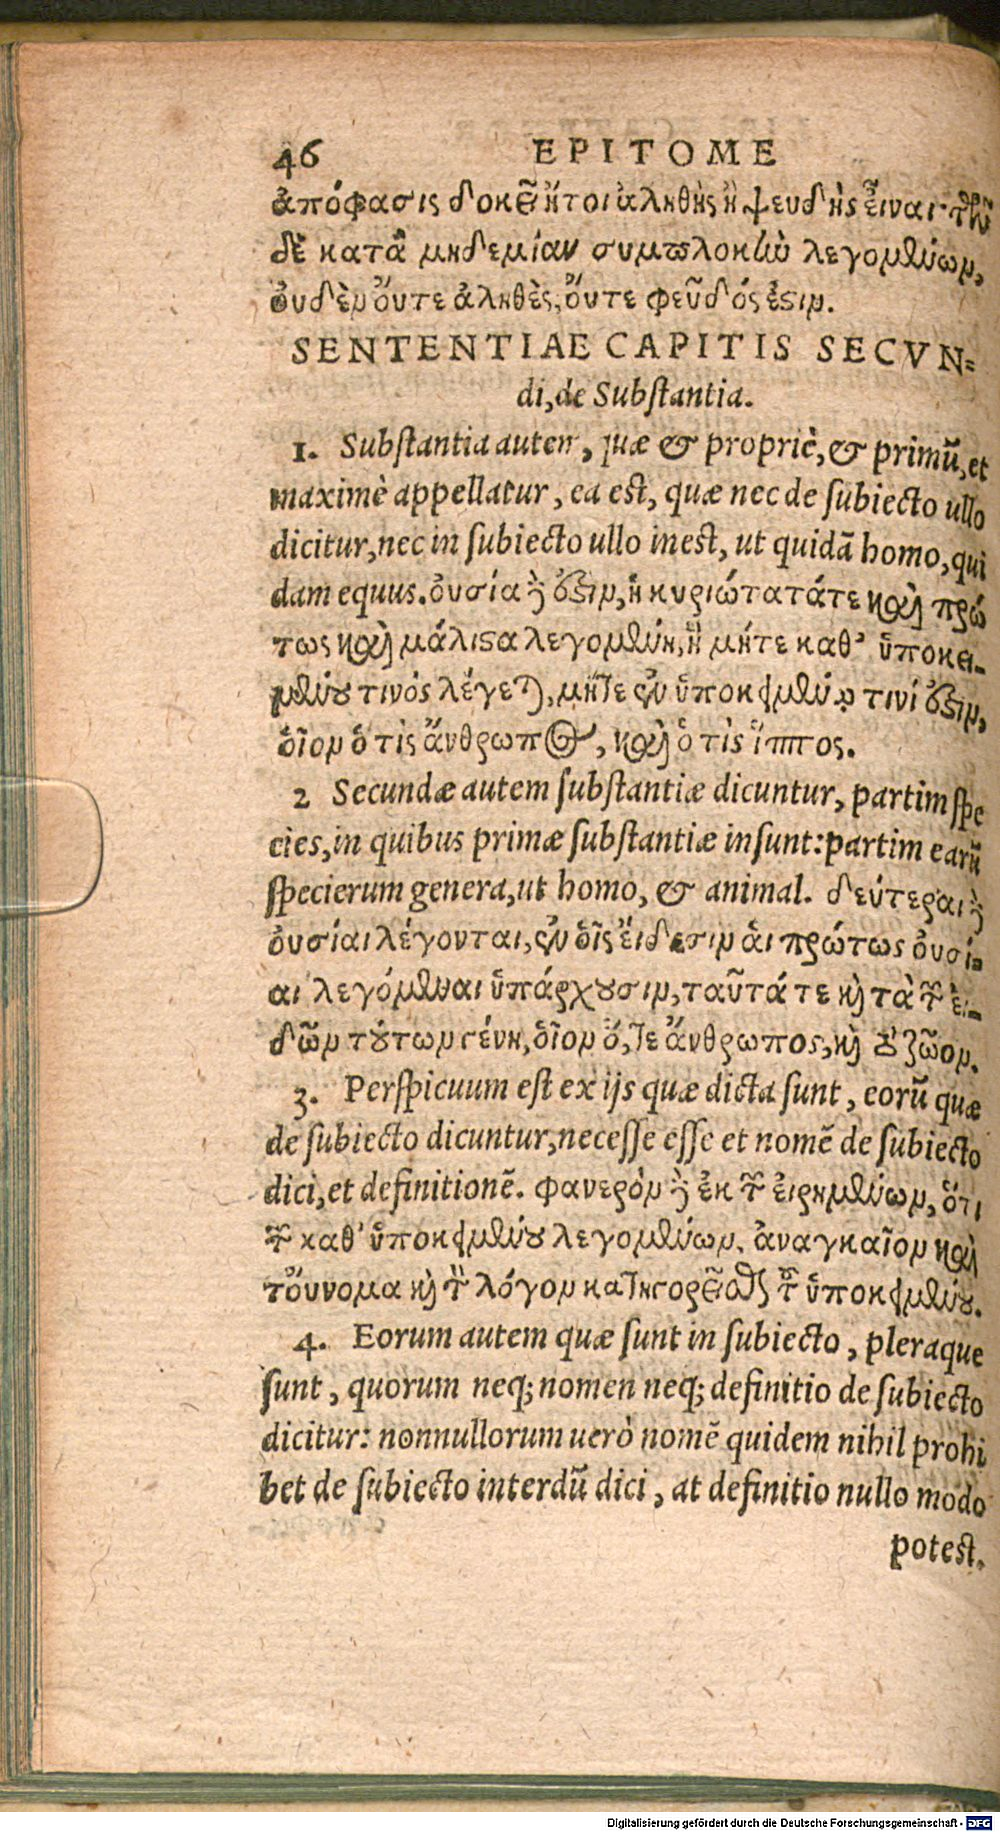 46 EPITOME
ἀπόφασις δοκεῖ ἤτοι ἀληθὴς ἢ ψευδὴς εἶναι· τῶν
δὲ κατὰ μηδεμίαν συμπλοκὴν λεγομένων,
οὐδὲν οὔτε ἀληθὲς, οὔτε φεῦδός ἐστιν.
SENTENTIAE CAPITIS SECVN=
di, de Substantia.
1. Substantia autem, quæ & propriè, & primũ, et
maximè appellatur, ea est, quæ nec de subiecto ullo
dicitur, nec in subiecto ullo inest, ut quidã homo, qui
dam equus. οὐσία δέ ἐστιν, ἡ κυριώτατάτε καὶ πρώ
τως καὶ μάλιστα λεγομένη, ἣ μήτε καθ’ ὑποκει-
μένου τινός λέγεται, μήτε ἐν ὑποκειμένῳ τινί ἐστιν,
οἷον ὁ τὶς ἄνθρωπος, καὶ ὁ τὶς ἵππος.
2 Secundæ autem substantiæ dicuntur, partim spe
cies, in quibus primæ substantiæ insunt: partim earũ
specierum genera, ut homo, & animal. δεύτεραι δὲ
οὐσίαι λέγονται, ἐν οἷς εἴδεσιν αἱ πρώτως οὐσί-
αι λεγόμεναι ὑπάρχουσιν, ταῦτά τε καὶ τὰ τῶν εἰ-
δῶν τούτων γένη, οἷον ὅ, τε ἄνθρωπος, καὶ τὸ ζῶον.
3. Perspicuum est ex ijs quæ dicta sunt, eorũ quæ
de subiecto dicuntur, necesse esse et nomẽ de subiecto
dici, et definitionẽ. φανερὸν δὲ ἐκ τῶν εἰρημένων, ὅτι
τῶν καθ’ ὑποκειμένου λεγομένων, ἀναγκαῖον καὶ
τοὔνομα καὶ τὸν λόγον κατηγορεῖσθαι τοῦ ὑποκειμένου.
4. Eorum autem quæ sunt in subiecto, pleraque
sunt, quorum neq; nomen neq; definitio de subiecto
dicitur: nonnullorum uerò nomẽ quidem nihil prohi
bet de subiecto interdũ dici, at definitio nullo modo
potest.
Digitalisierung gefördert durch die Deutsche Forschungsgemeinschaft - DFG